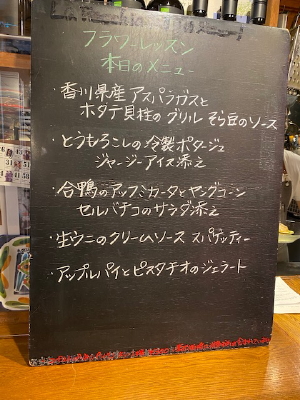 フラワーレッスン
本日のメニュー
・香川県産アスパラガスと
ホタテ貝柱のグリル そら豆のソース
・とうもろこしの冷製ポタージュ
ジャージーアイス添え
・合鴨のアッフミカータとヤングコーン
セルバチコのサラダ添え
・生ウニのクリームソース スパゲッティー
・アップルパイとピスタチオのジェラート